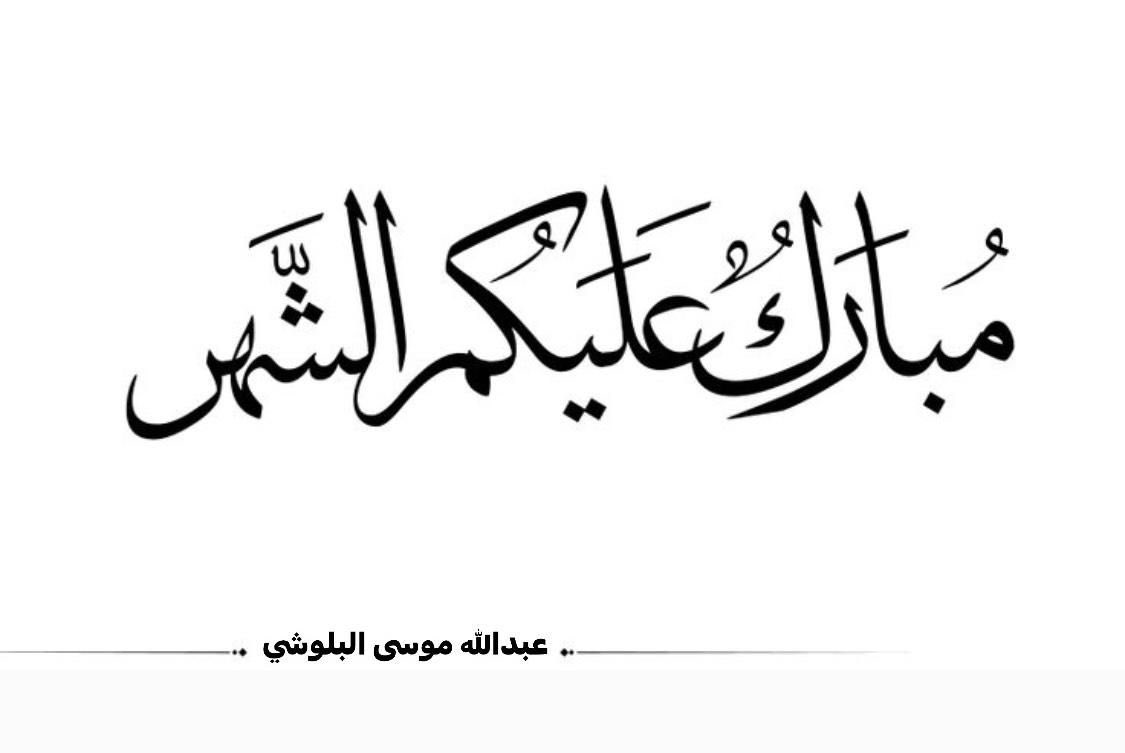 مُبارَكٌ عَليَكُم الشَّهر
عبدالله موسى البلوشي